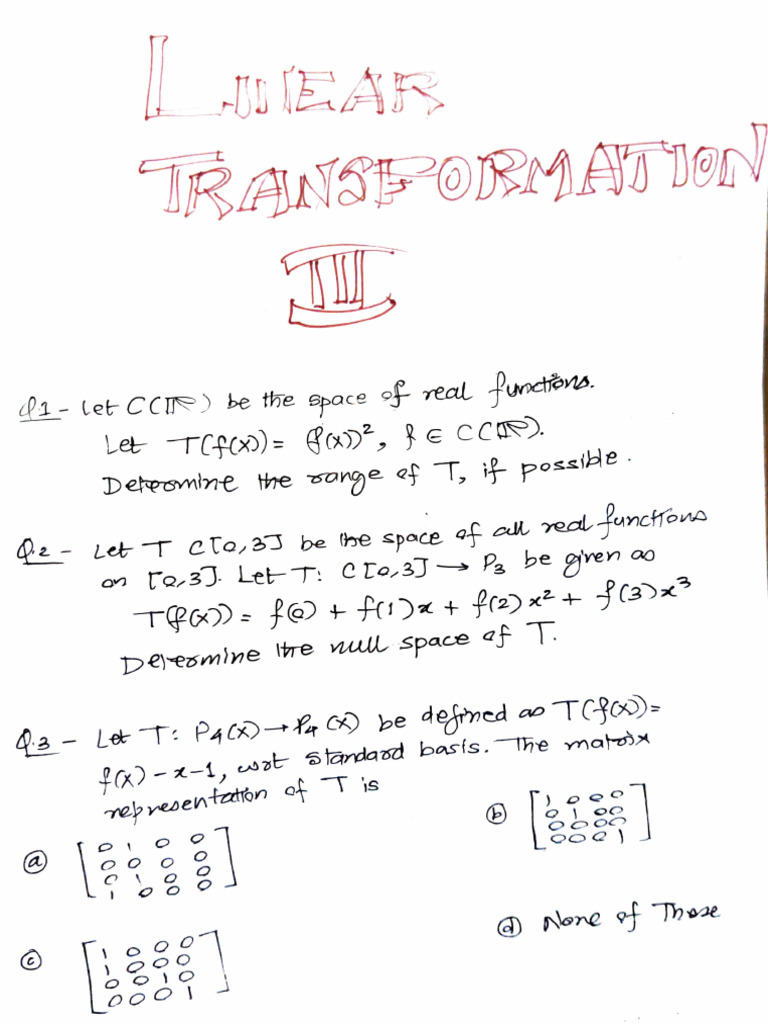 LINEAR
TRANSFORMATION
III
Q.1 - Let C(ℝ) be the space of real functions.
Let T(f(x)) = (f(x))², f ∈ C(ℝ).
Determine the range of T, if possible.
Q.2 - Let T C[0,3] be the space of all real functions
on [0,3]. Let T: C[0,3] → P₃ be given as
T(f(x)) = f(0) + f(1)x + f(2)x² + f(3)x³
Determine the null space of T.
Q.3 - Let T: P₄(x) → P₄(x) be defined as T(f(x)) =
f(x) - x - 1, wrt standard basis. The matrix
representation of T is
(a) [0 1 0 0
0 0 0 0
0 1 0 0
1 0 0 0]
(b) [1 0 0 0
0 1 0 0
0 0 0 0
0 0 0 1]
(c) [1 0 0 0
1 0 0 0
0 0 1 0
0 0 0 1]
(d) None of These